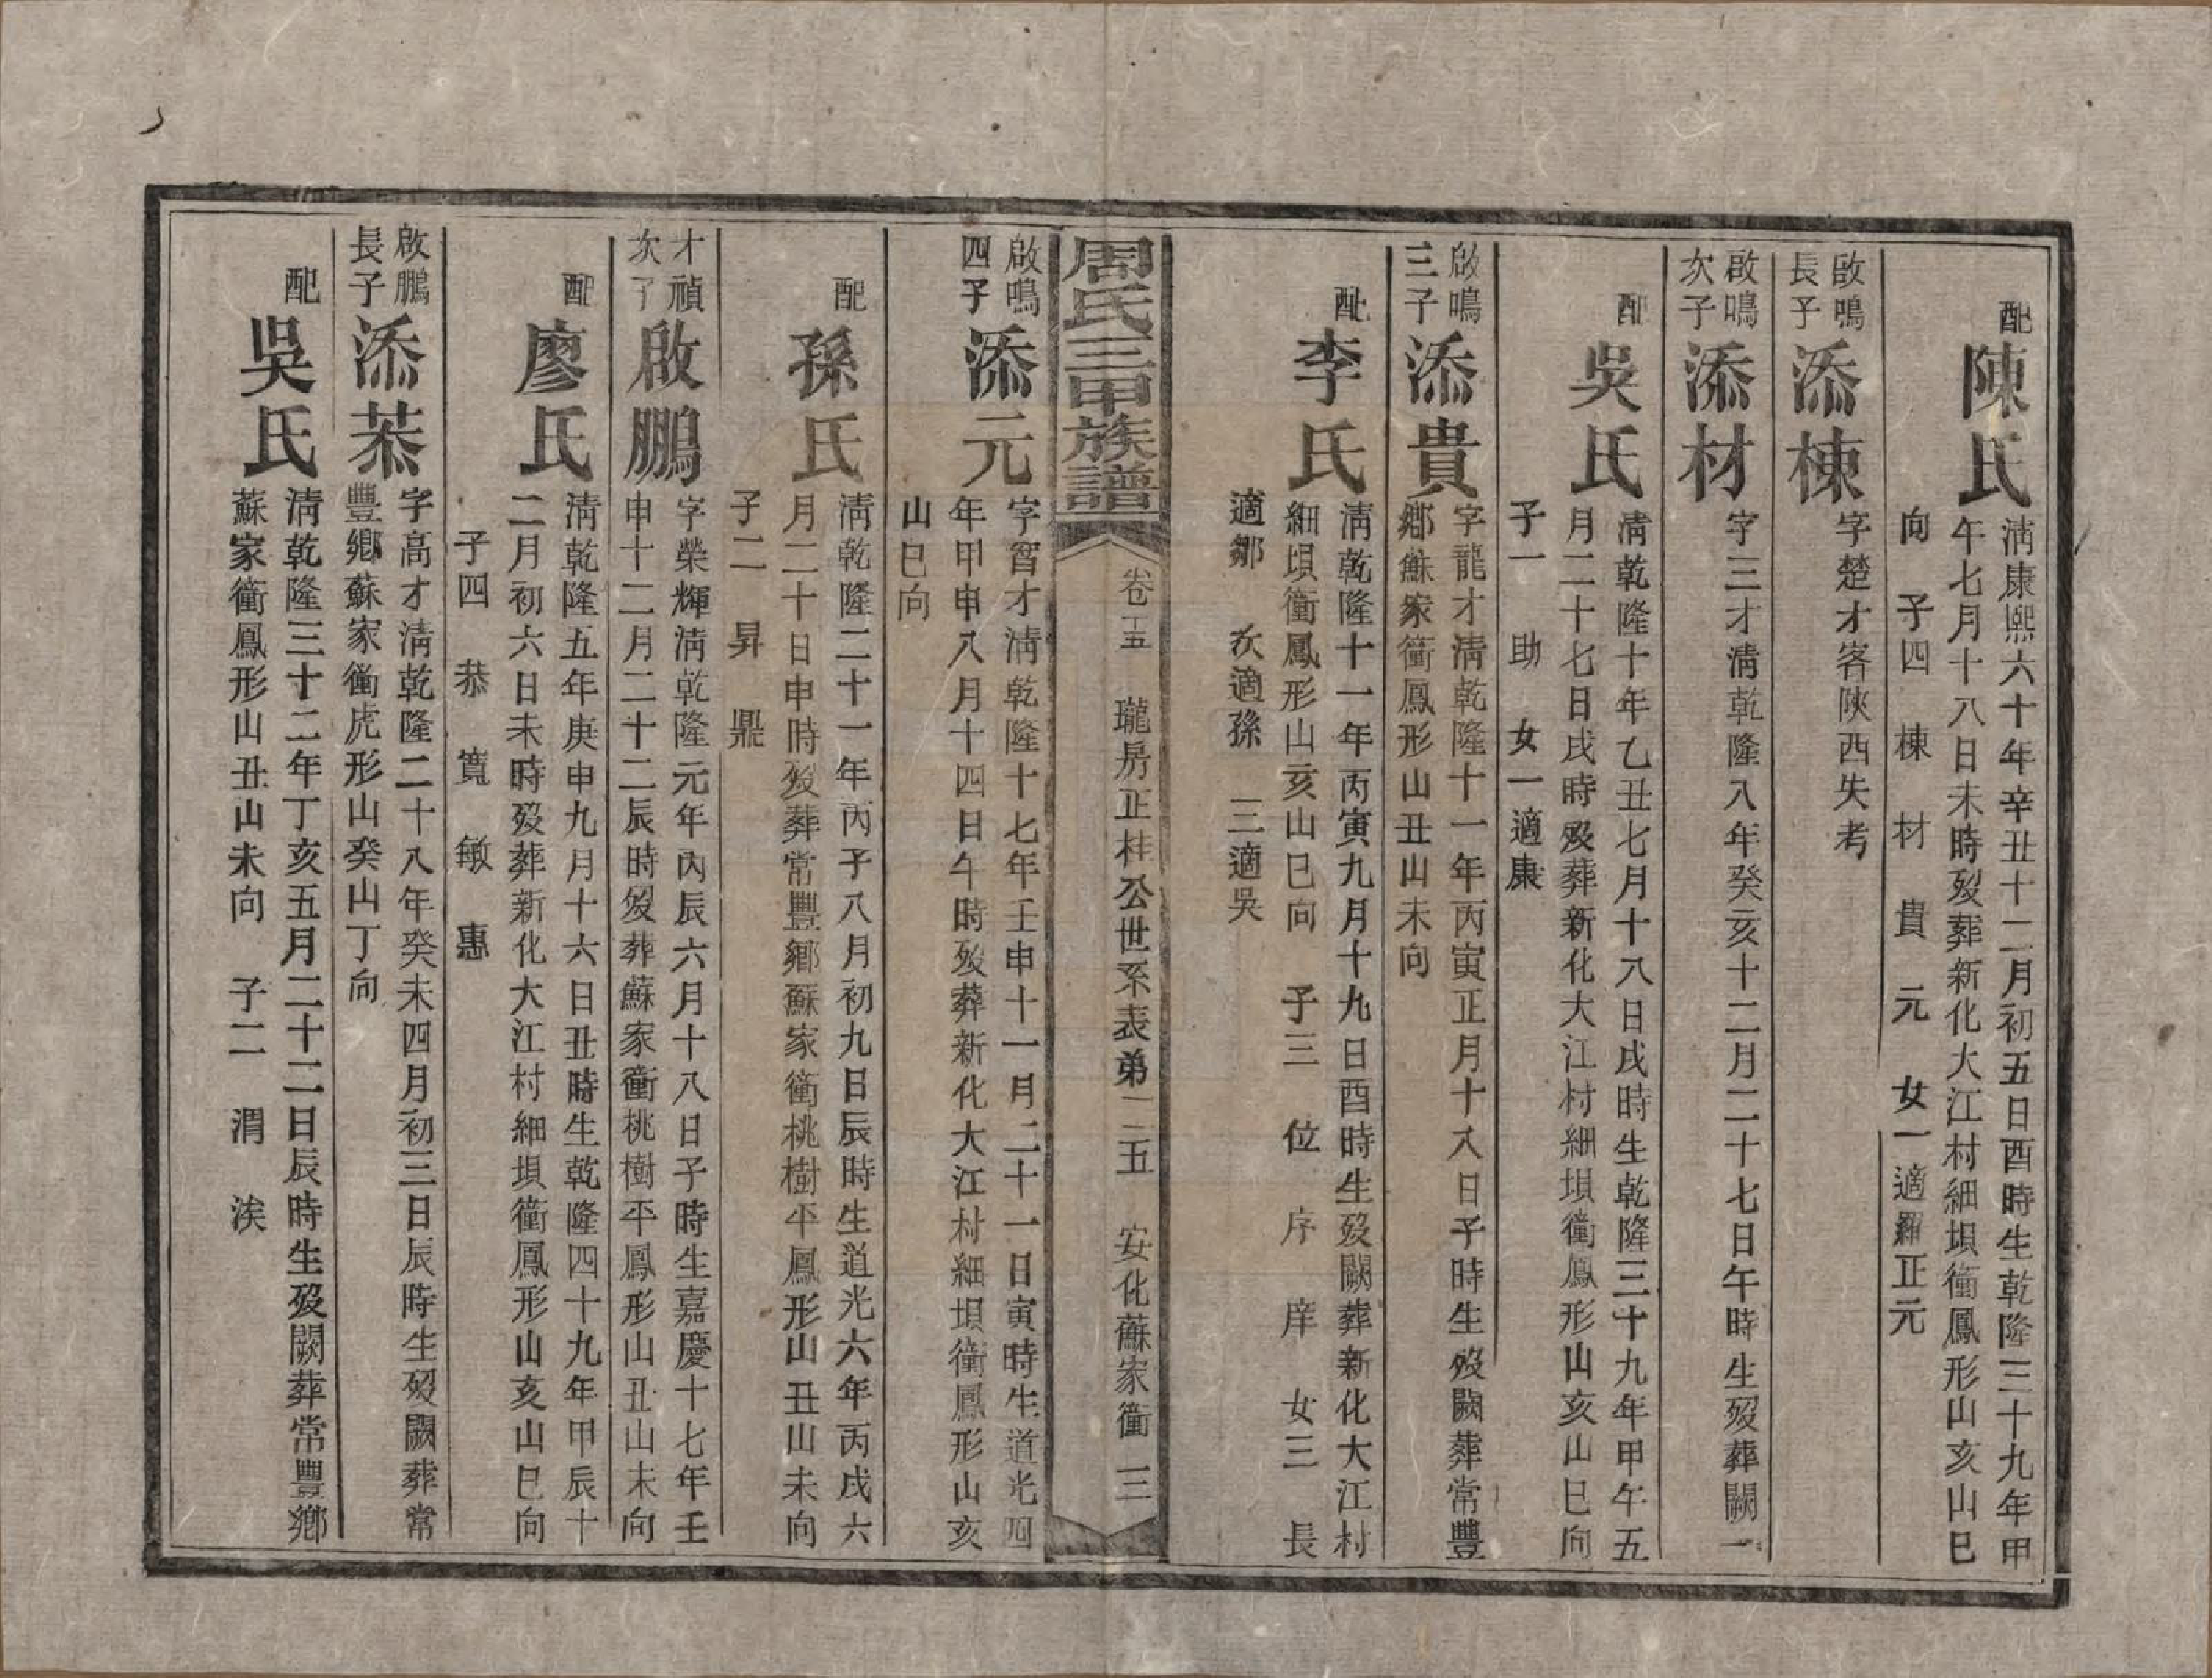 配陳氏
清康熙六十年辛丑十二月初五日酉時生乾隆三十九年甲
午七月十八日未時歿葬新化大江村細垻衝鳳形山亥山巳
向 子四 棟 材 貴 元 女一適羅正元
啟鳴
長子
添棟
字楚才客陝西失考
啟鳴
次子
添材
字三才清乾隆八年癸亥十二月二十七日午時生歿葬闕
配吳氏
清乾隆十年乙丑七月十八日戌時生乾隆三十九年甲午五
月二十七日戌時歿葬新化大江村細垻衝鳳形山亥山巳向
子一 助 女一適康
啟鳴
三子
添貴
字龍才清乾隆十一年丙寅正月十八日子時生歿闕葬常豐
鄉蘇家衝鳳形山丑山未向
配李氏
清乾隆十一年丙寅九月十九日酉時生歿闕葬新化大江村
細垻衝鳳形山亥山巳向 子三 位 序 庠 女三 長
適鄒 次適孫 三適吳
周氏三甲族譜
卷十五 瓏房正桂公世系表弟一二五 安化蘇家衝 三
啟鳴
四子
添元
字習才清乾隆十七年壬申十一月二十一日寅時生道光四
年甲申八月十四日午時歿葬新化大江村細垻衝鳳形山亥
山巳向
配孫氏
清乾隆二十一年丙子八月初九日辰時生道光六年丙戌六
月二十日申時歿葬常豐鄉蘇家衝桃樹平鳳形山丑山未向
子二 昇 鼎
才禎
次子
啟鵬
字榮輝清乾隆元年丙辰六月十八日子時生嘉慶十七年壬
申十二月二十二辰時歿葬蘇家衝桃樹平鳳形山丑山未向
配廖氏
清乾隆五年庚申九月十六日丑時生乾隆四十九年甲辰十
二月初六日未時歿葬新化大江村細垻衝鳳形山亥山巳向
子四 恭 寬 敏 惠
啟鵬
長子
添恭
字高才清乾隆二十八年癸未四月初三日辰時生歿闕葬常
豐鄉蘇家衝虎形山癸山丁向
配吳氏
清乾隆三十二年丁亥五月二十二日辰時生歿闕葬常豐鄉
蘇家衝鳳形山丑山未向 子二 渭 涘